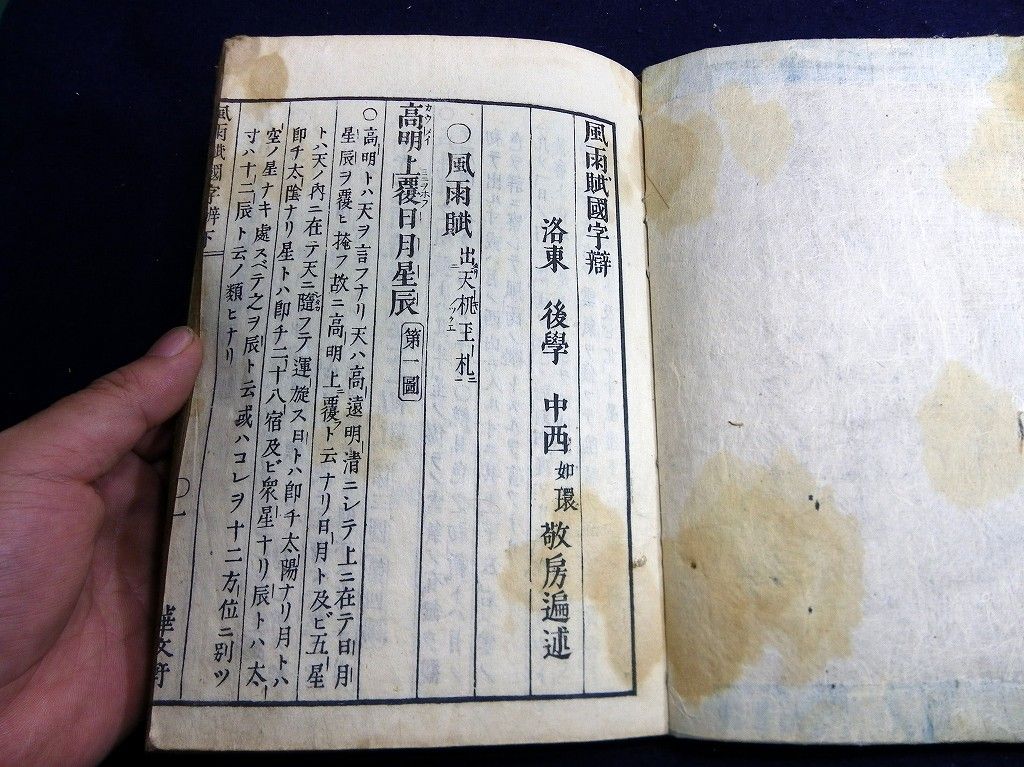 風雨賦國字辯
洛東 後學 中西如環敬房遍述
○風雨賦 出天机王札
高明上覆日月星辰 第一圖
カウメイ
ニヲホフ
○高明トハ天ヲ言フナリ天ハ高遠明清ニシテ上ニ在テ日月
星辰ヲ覆ヒ掩フ故ニ高明上ニ覆フト云ナリ日月ト及ビ五星
ト八天ノ内ニ在テ天ニ隨フテ運旋ス日トハ卽チ太陽ナリ月トハ
卽チ太陰ナリ星トハ卽チ二十八宿及ビ衆星ナリ辰トハ太
空ノ星ナキ處スベテ之ヲ辰ト云或ハコレヲ十二方位ニ別ツ
寸ハ十二辰ト云ノ類ヒナリ
風雨賦國字辨下
○一
華文軒